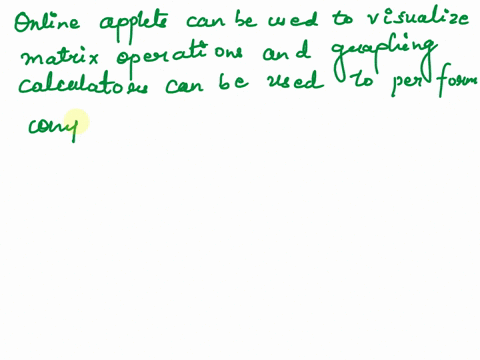 Online applets can be used to visualize
matrix operations and graphing
calculators can be used to perform
comp